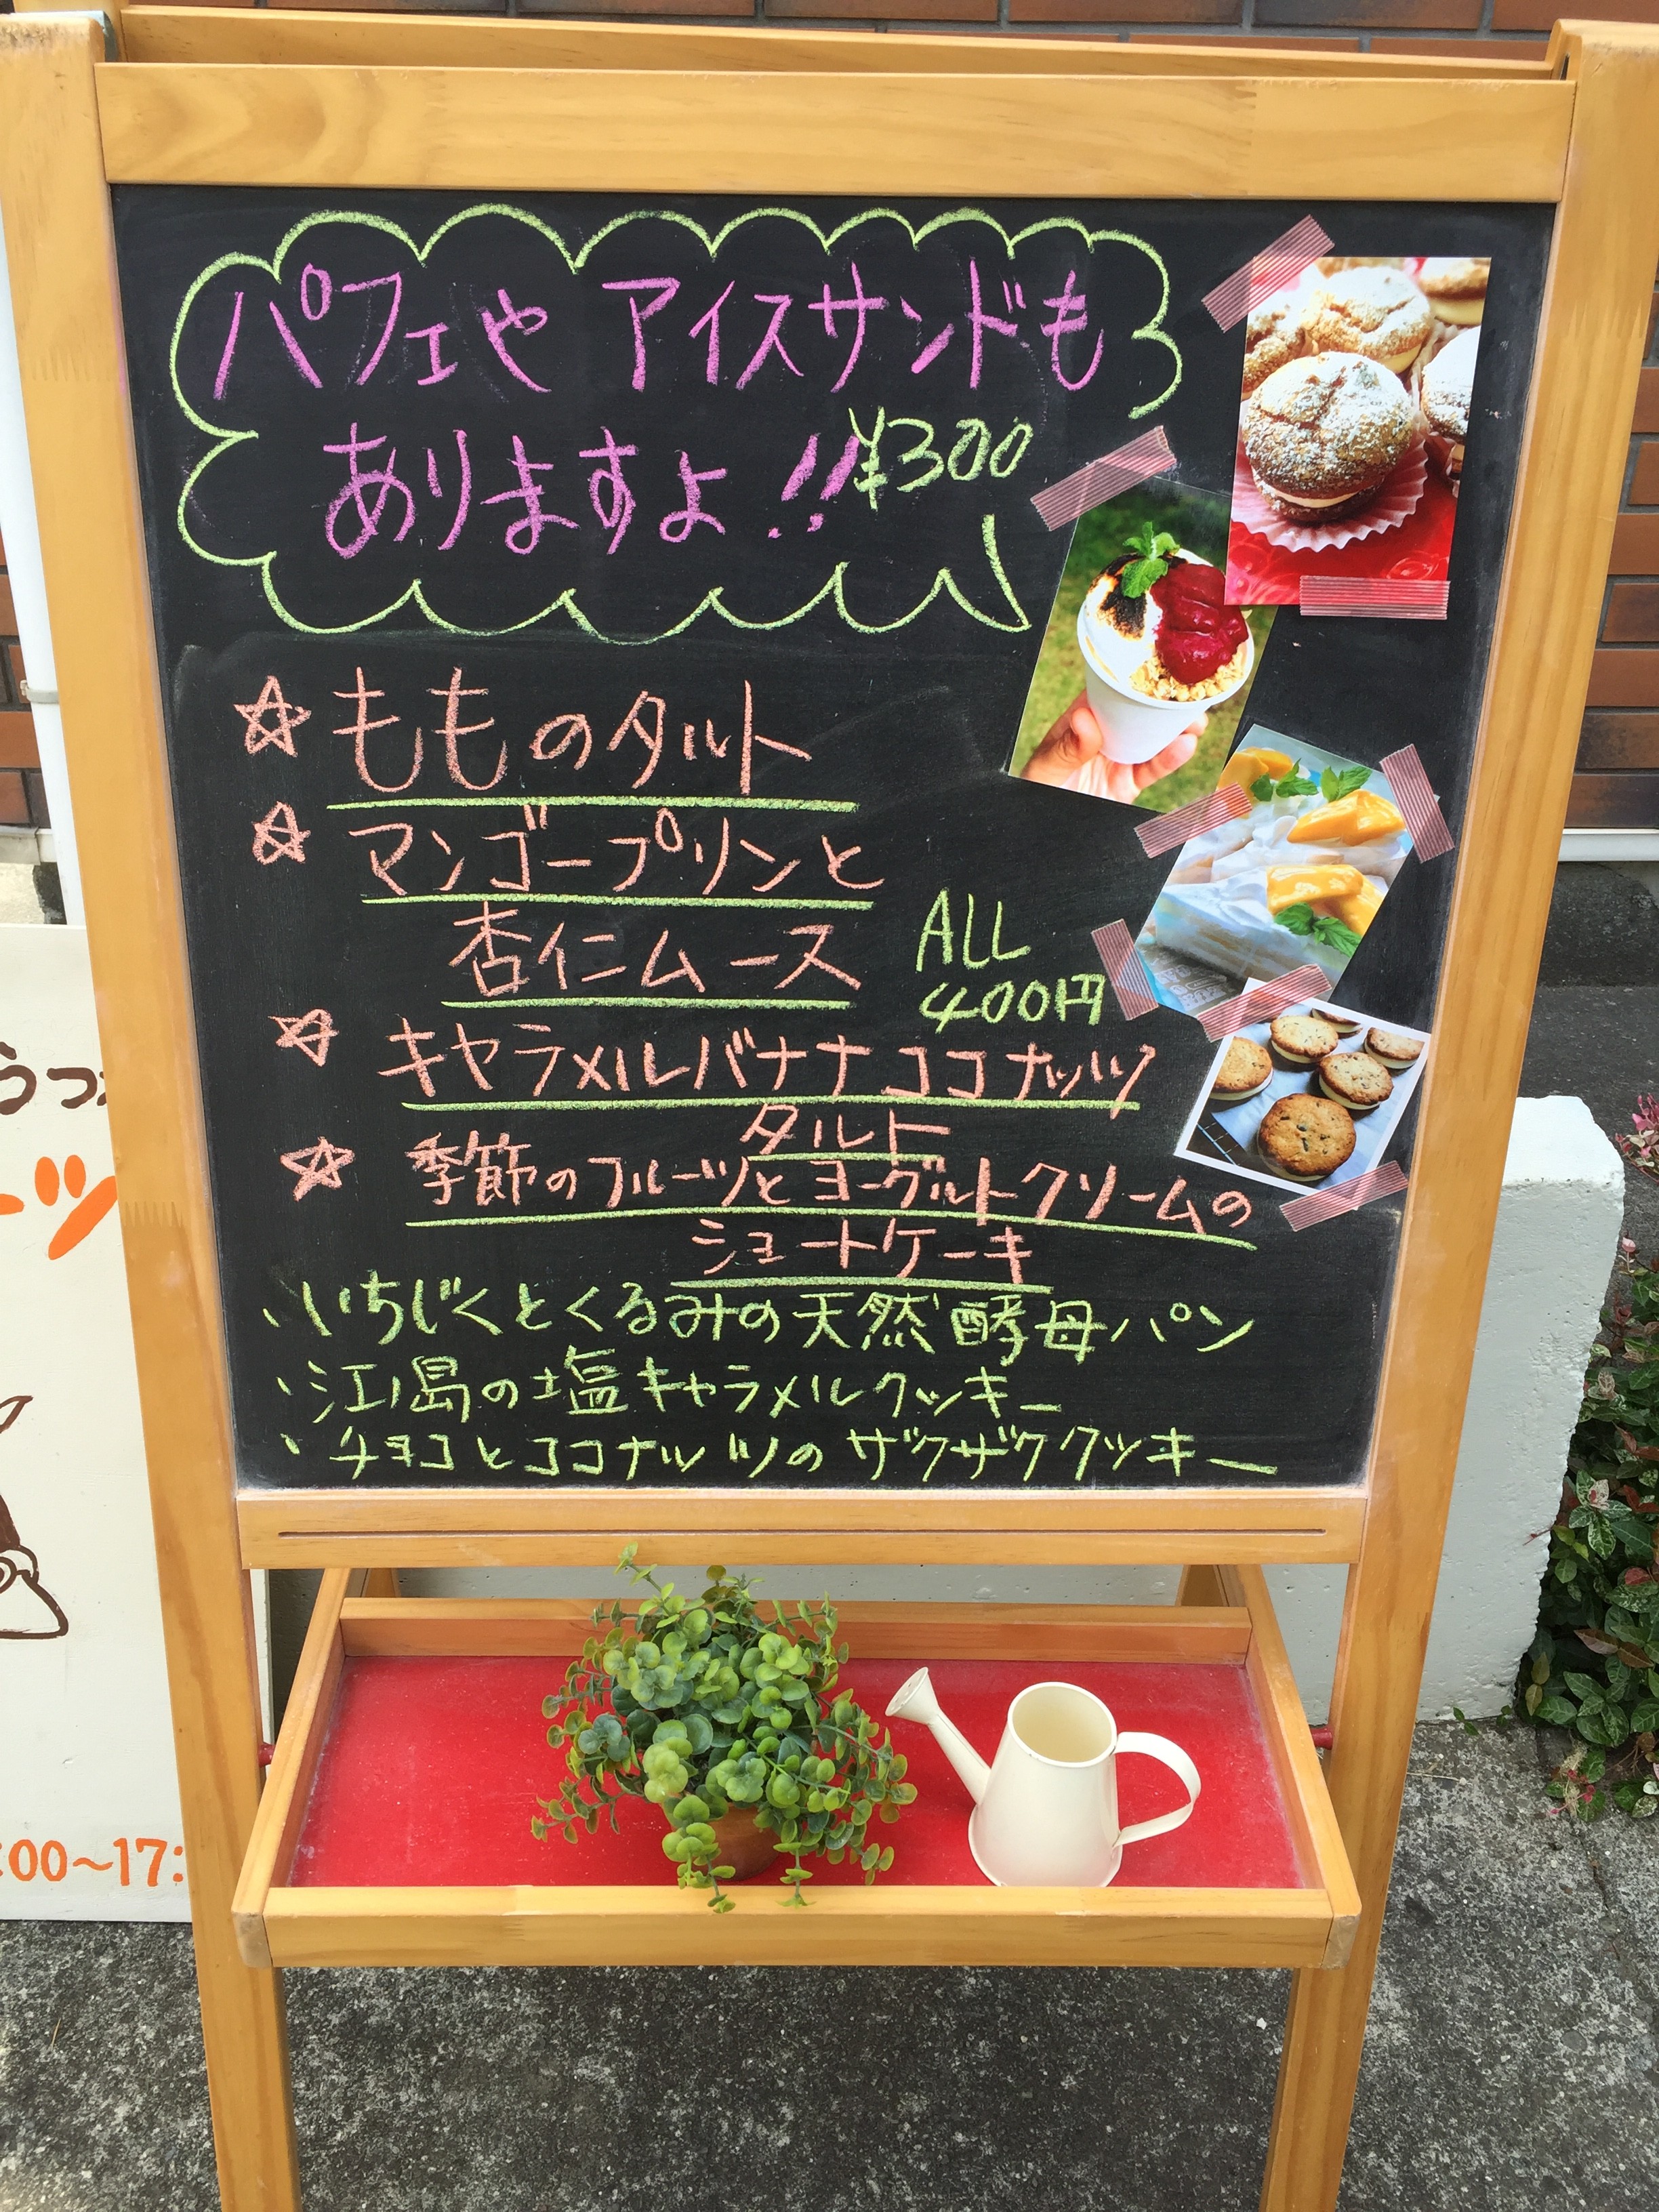 パフェや アイスサンドも
ありますよ!! ¥300
☆ もものタルト
☆ マンゴープリンと
杏仁ムース
ALL
400円
☆ キャラメルバナナココナッツ
タルト
☆ 季節のフルーツとヨーグルトクリームの
ショートケーキ
、いちじくとくるみの天然酵母パン
、江ノ島の塩キャラメルクッキー
、チョコとココナッツのザクザククッキー
うっ
ーツ
:00〜17: